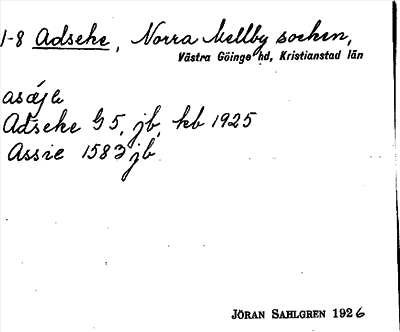 1-8 Adseke, Norra Mellby socken,
Västra Göinge hd, Kristianstad län
Adseke G 5, jb, kb 1925
Assie 1583 jb
JÖRAN SAHLGREN 1926